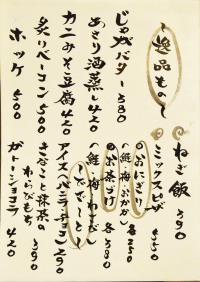 逸品もの
ねぎ飯 390
ミックスピザ 550
おにぎり
(鮭・梅・おかか) 各250
お茶づけ
(鮭・梅・わさび) 各380
でざーと
アイス(バニラ・チョコ) 290
きなこと抹茶の
わらびもち 390
ガトーショコラ 420
じゃがバター 380
あさり酒蒸し 420
カニみそ豆腐 420
炙りベーコン 500
ホッケ 500